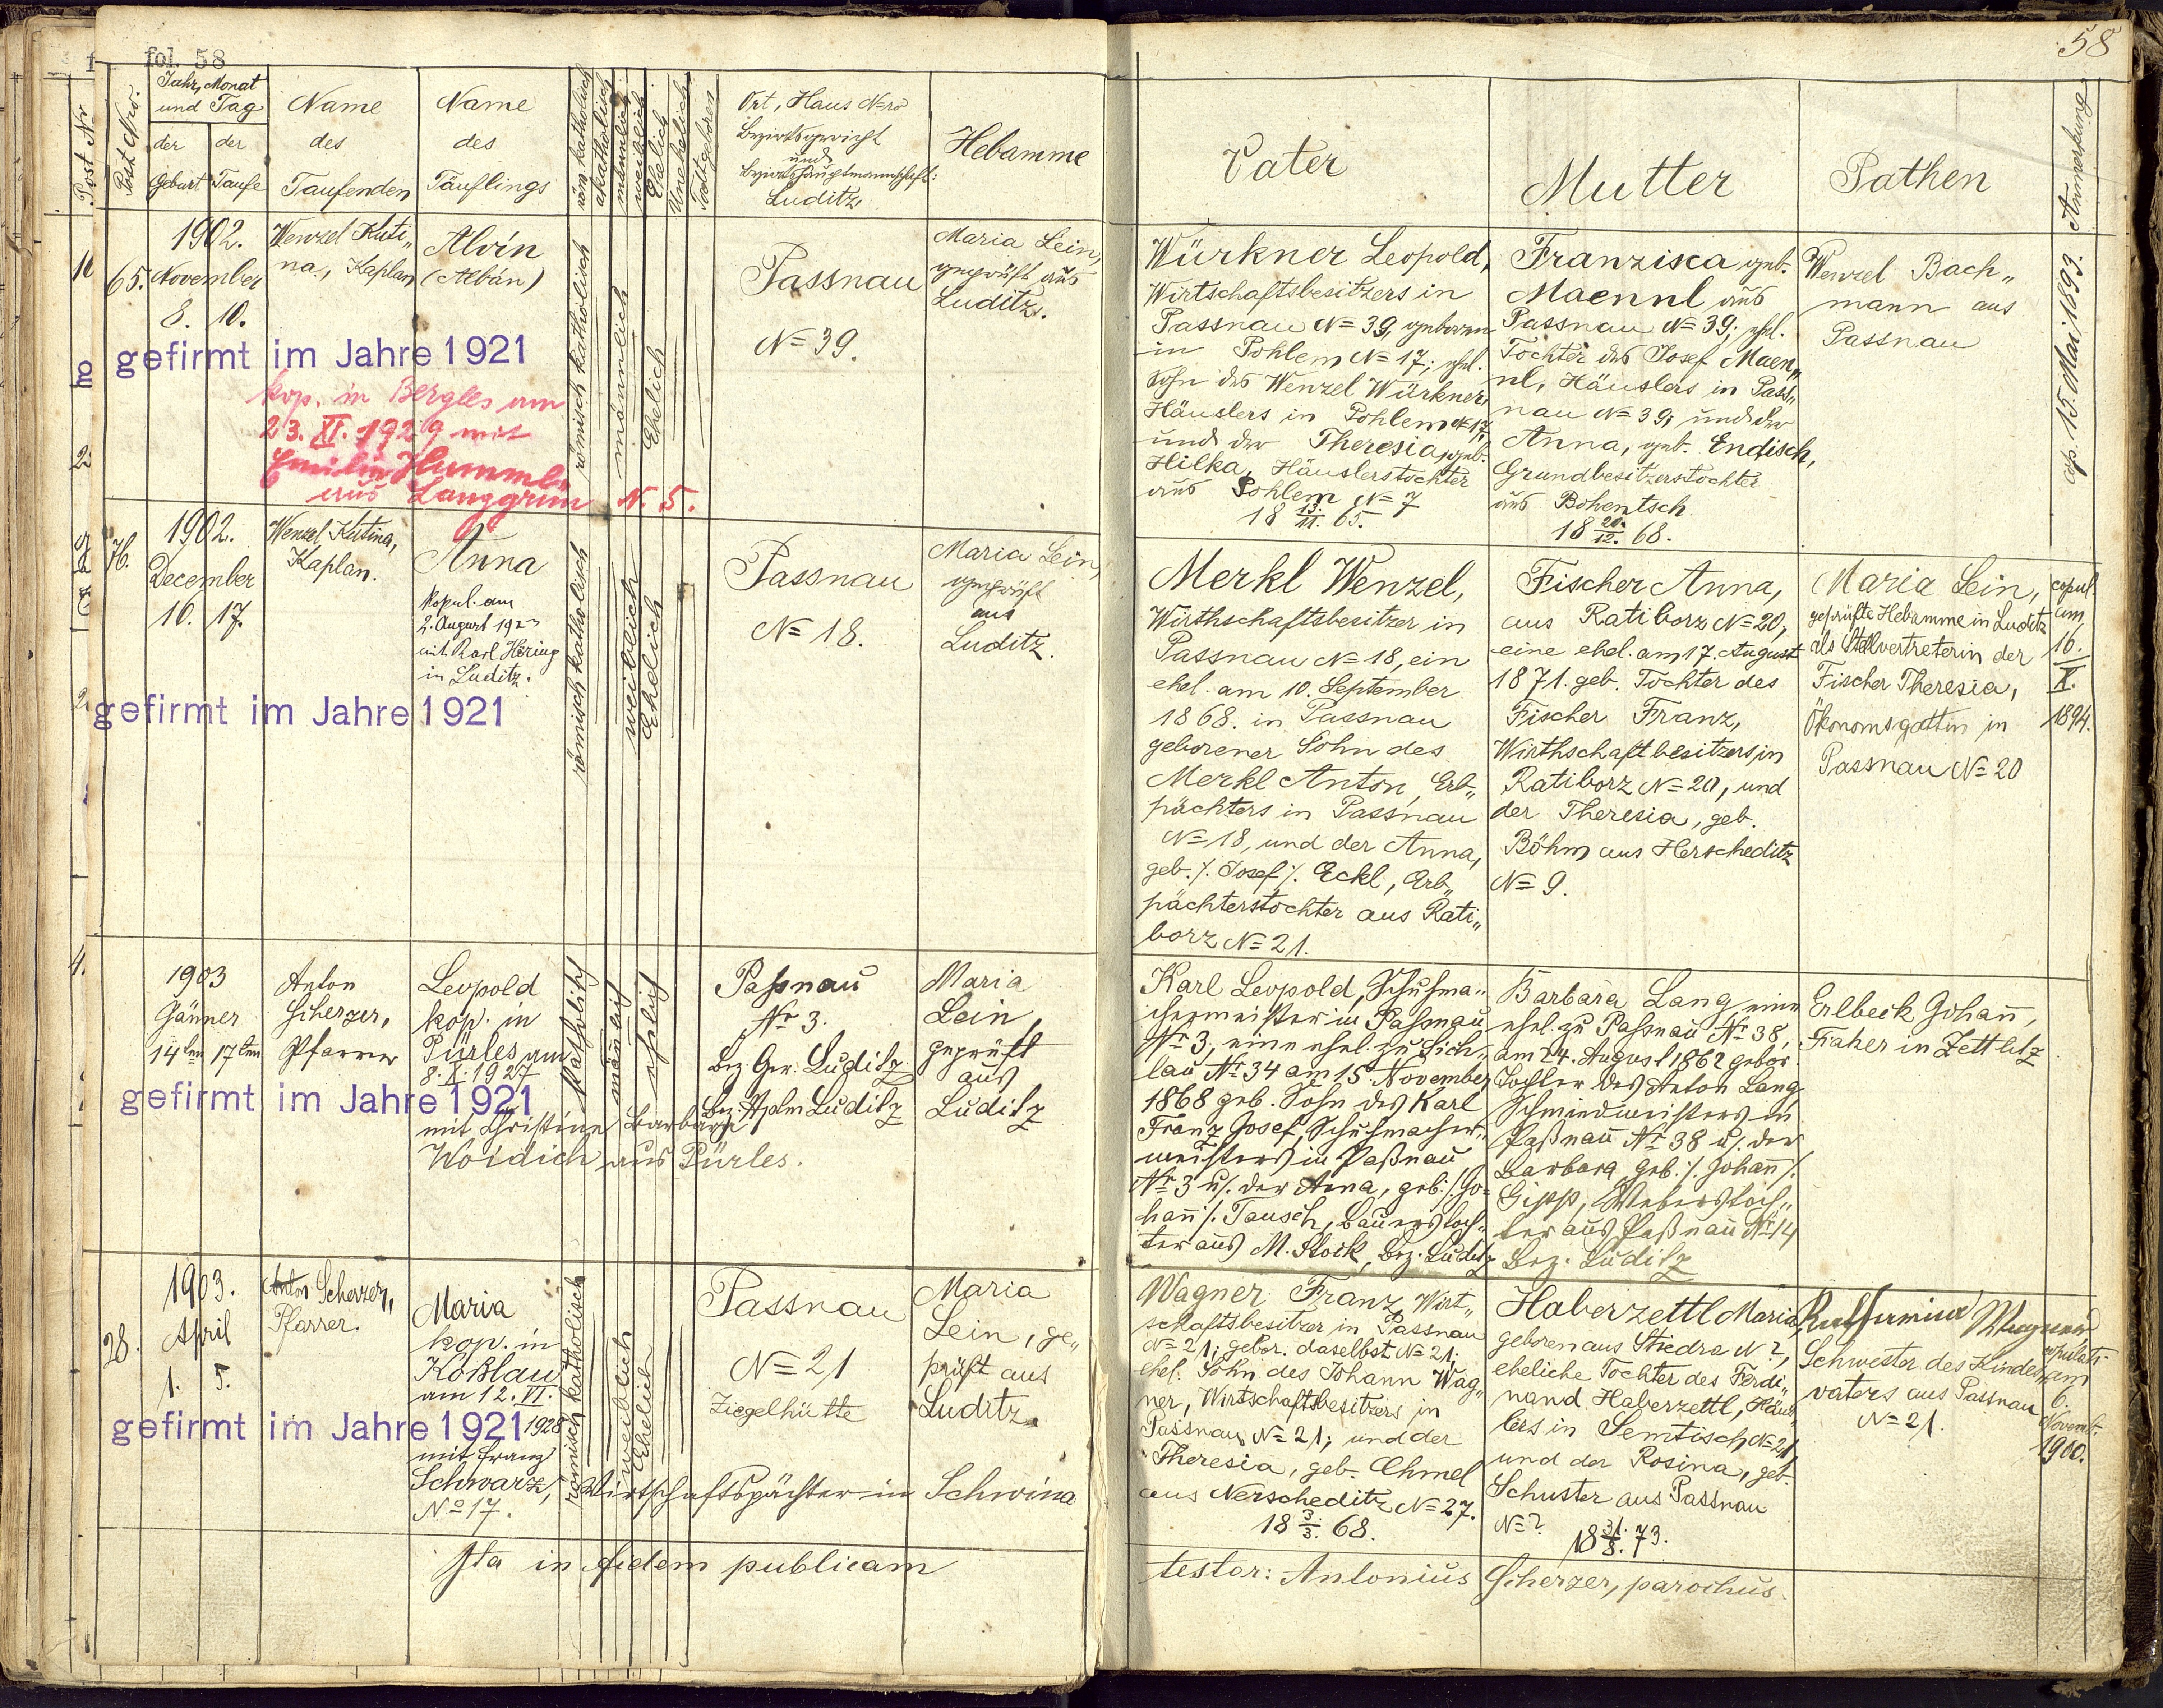 fol. 58
58
Post Nr
Post Nro.
Jahr, Monat
und Tag
der
Geburt
der
Taufe
Name
des
Taufenden
Name
des
Täuflings
röm. katholisch
akatholisch
männlich
weiblich
Ehelich
Unehelich
Todtgeboren
Ort, Haus Nro
Bezirksgericht
und
Bezirkshauptmannschaft:
Luditz
Hebamme
Vater
Mutter
Pathen
Anmerkung
65.
1902.
November
8. 10.
Wenzel Kuti„
na, Kaplan
Alvin
(Albán)
gefirmt im Jahre 1921
kop. in Bergles am
23. XI. 1929 mit
Emilie Hummel
aus Langgrün N. 5.
römisch katholisch
männlich
Ehelich
Passnau
N= 39.
Maria Lein,
geprüft aus
Luditz.
Würkner Leopold,
Wirtschaftsbesitzers in
Passnau N= 39, geboren
in Pohlem N= 17; ehel.
Sohn des Wenzel Würkner,
Häuslers in Pohlem N= 17,
und der Theresia, geb.
Hilka, Häuslerstochter
aus Pohlem N= 7
18 13./11. 65.
Franzisca geb.
Maennl aus
Passnau N= 39; ehel.
Tochter des Josef Maen„
nl, Häuslers in Pass„
nau N= 39; und der
Anna, geb. Endisch,
Grundbesitzerstochter
aus Bohentsch
18 20./12. 68.
Wenzel Bach„
mann aus
Passnau
cop. 15. Mai 1893.
76.
1902.
December
16. 17.
Wenzel Kutina,
Kaplan.
Anna
kopul. am
2. August 192
mit Karl Hering
in Luditz.
gefirmt im Jahre 1921
römisch katholisch
weiblich
Ehelich
Passnau
N= 18.
Maria Lein,
geprüft
aus
Luditz.
Merkl Wenzel,
Wirthschaftsbesitzer in
Passnau N= 18, ein
ehel. am 10. September
1868. in Passnau
geborener Sohn des
Merkl Anton, Erb„
pächters in Passnau
N= 18, und der Anna,
geb. /. Josef /. Eckl, Erb„
pächterstochter aus Rati„
borz N= 21.
Fischer Anna,
aus Ratiborz N= 20,
eine ehel. am 17. August
1871. geb. Tochter des
Fischer Franz,
Wirthschaftbesitzers in
Ratiborz N= 20, und
der Theresia, geb.
Böhm aus Herscheditz
N= 9.
Maria Lein,
geprüfte Hebamme in Luditz
als Stellvertreterin der
Fischer Theresia,
Ökonomsgattin in
Passnau N= 20
copul.
am
16.
X.
1894.
1903
Jänner
14ten 17ten
Anton
Scherzer,
Pfarrer
Leopold
kop. in
Pürles am
8. X. 1927
gefirmt im Jahre 1921
mit Christine Barbara
Woidich aus Pürles.
katholisch
männlich
ehelich
Paßnau
Nr 3.
Bez. Ger. Luditz
Bez. Hptm Luditz
Maria
Lein,
geprüft
aus
Luditz
Karl Leopold, Schuhma„
chermeister in Paßnau
Nr 3, eine ehel. zu Sich„
lau Nr 34 am 15. November
1868 geb. Sohn des Karl
Franz Josef, Schuhmacher„
meisters in Paßnau
Nr 3 u. der Anna, geb. /. Jo„
hann /. Tausch, Bauerstoch„
ter aus M. Stock, Bez. Luditz
Barbara Lang, eine
ehel. zu Paßnau Nr 38,
am 24. August 1862 gebor.
Tochter des Anton Lang
Schmiedmeisters in
Paßnau Nr 38 u. der
Barbara, geb. /. Johann /.
Gipp, Weberstoch„
ter aus Paßnau Nr 14
Bez. Luditz
Erlbeck Johann,
in Zettlitz
28.
1903.
April
1. 5.
Anton Scherzer,
Pfarrer.
Maria
kop. in
Koßlau
am 12. VI.
1928
gefirmt im Jahre 1921
mit Franz
Schwarz, Wirtschaftspächter in Schwina
No 17.
römisch katholisch
weiblich
Ehelich
Passnau
N= 21
Ziegelhütte
Maria
Lein, ge„
prüft aus
Luditz.
Wagner Franz, Wirt„
schaftsbesitzer in Passnau
N= 21; gebor. daselbst N= 21;
ehel. Sohn des Johann Wag„
ner, Wirtschaftsbesitzers in
Passnau N= 21; und der
Theresia, geb. Chmel
aus Nerscheditz N= 27.
18 3./3. 68.
Haberzettl Maria,
geboren aus Stiedra N ?,
eheliche Tochter des Ferdi„
nand Haberzettl, Häus„
lers in Semtisch N= 21
und der Rosina, geb.
Schuster aus Passnau
N= ?
18 31./8. 73.
Wagner
Schwester des Kindes„
vaters aus Passnau
N= 21.
copulati
am
6.
Novemb.
1900.
Ita in fidem publicam
testor: Antonius Scherzer, parochus.